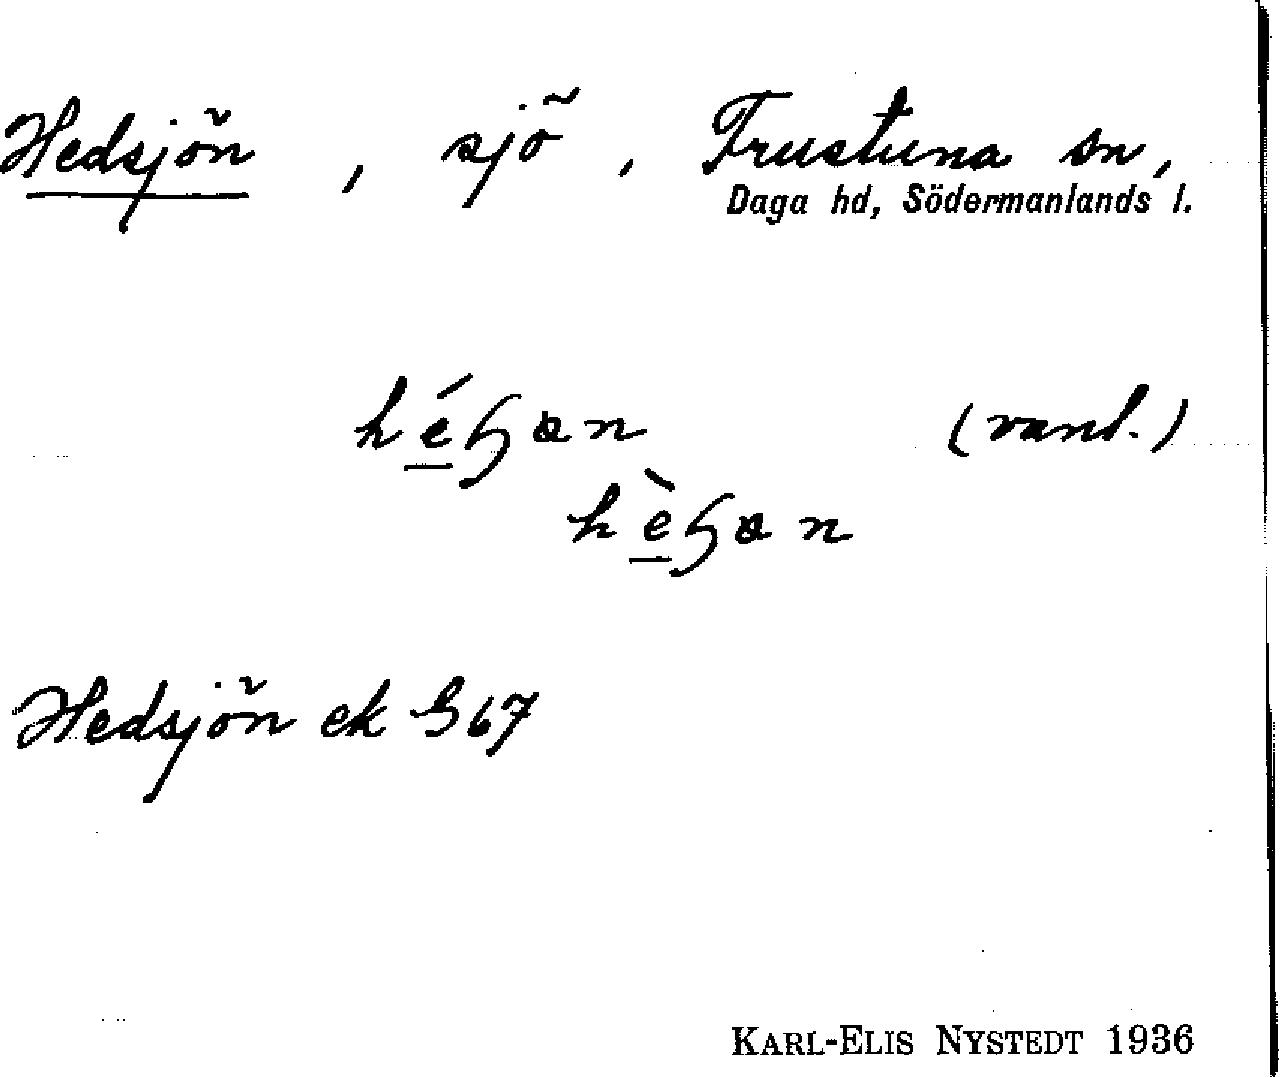 Hedsjön, sjö, Frustuna sn,
Daga hd, Södermanlands l.
(vanl.)
Hedsjön ek G 67
KARL-ELIS NYSTEDT 1936